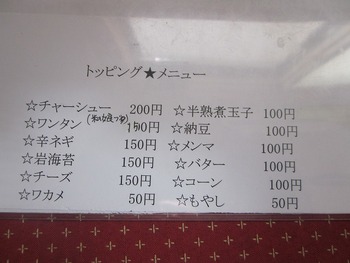 トッピング★メニュー
☆チャーシュー 200円
☆ワンタン 150円
☆辛ネギ 150円
☆岩海苔 150円
☆チーズ 150円
☆ワカメ 50円
☆半熟煮玉子 100円
☆納豆 100円
☆メンマ 100円
☆バター 100円
☆コーン 100円
☆もやし 50円